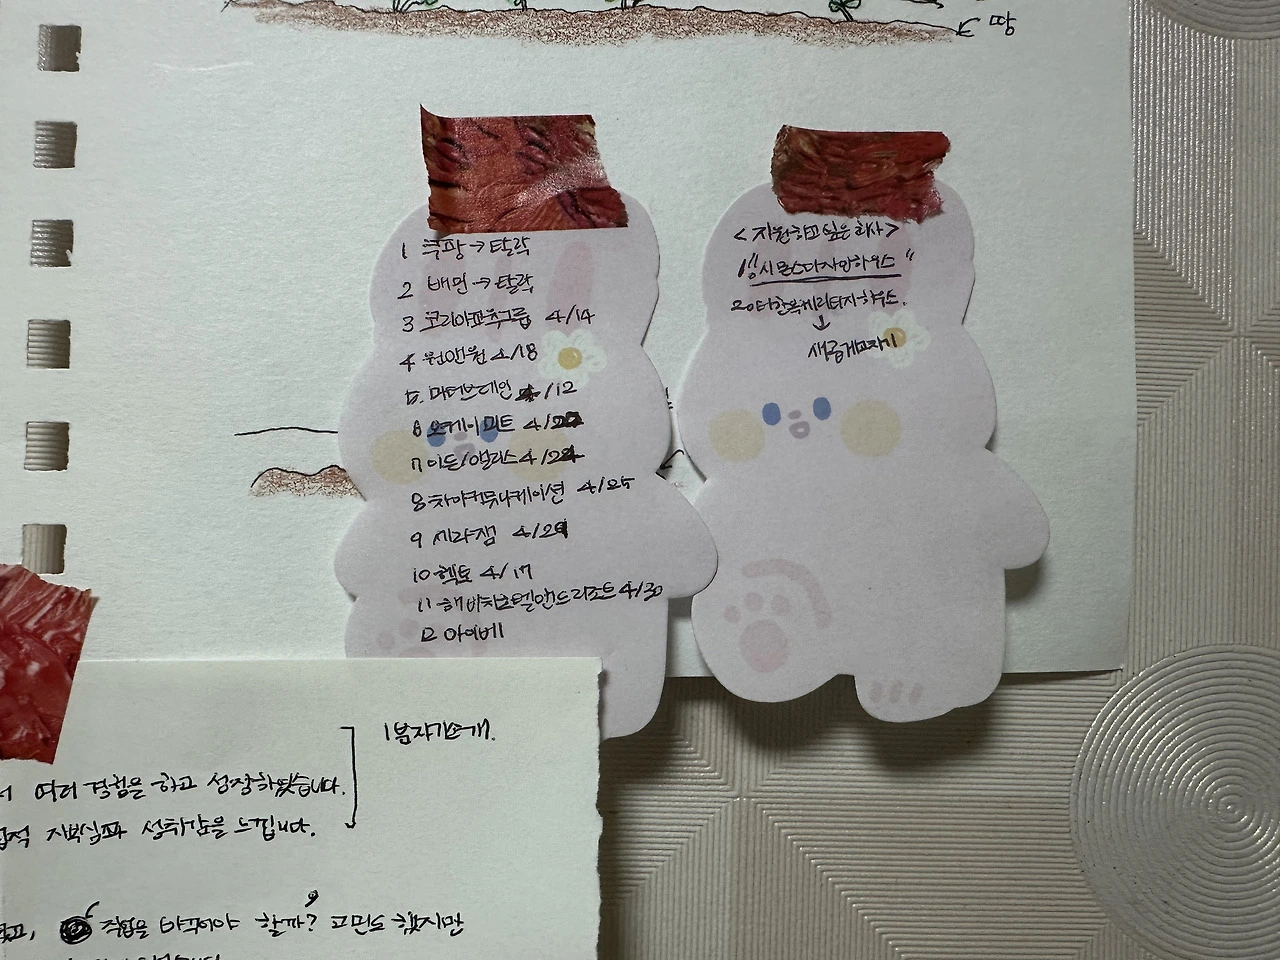 땅
1 쿠팡→탈락
2 배민→탈락
3 코리아교육그룹 4/14
4 원앤원 4/18
5. 마더브레인 4/12
6 오케이미트 4/22
7 이든/앨리스 4/24
8 차이커뮤니케이션 4/25
9 세라젬 4/29
10 헥토 4/17
11 해비치호텔앤드리조트 4/30
12 아이베
<지원하고 싶은 회사>
1 "시몬스디자인하우스"
2
↓
새롭게고치기
1분자기소개.
서 여러 경험을 하고 성장하였습니다.
자부심과 성취감을 느낍니다.
직업을 바꾸어야 할까? 고민도 했지만